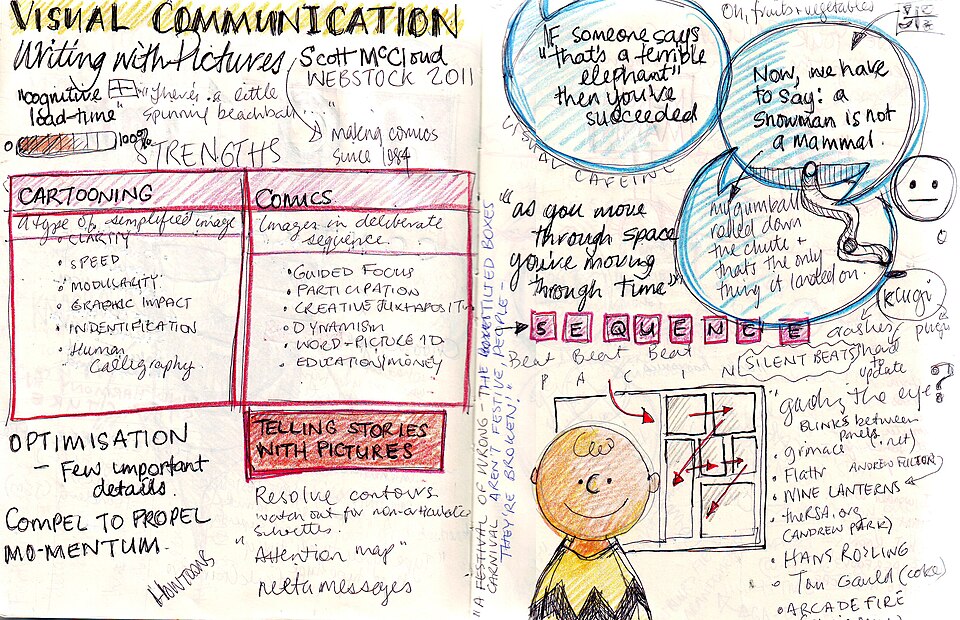 VISUAL COMMUNICATION
Writing with Pictures
Scott McCloud
WEBSTOCK 2011
"cognitive
load-time"
"There's a little
spinning beachball"
0 100%
making comics
since 1984
STRENGTHS
CARTOONING
A type of simplified image
• CLARITY
• SPEED
• MODULARITY
• GRAPHIC IMPACT
• INDENTIFICATION
• Human
Calligraphy.
COMICS
Images in deliberate
sequence.
• GUIDED FOCUS
• PARTICIPATION
• CREATIVE JUXTAPOSITION
• DYNAMISM
• WORD-PICTURE ID
EDUCATION/MONEY
OPTIMISATION
- Few important
details.
COMPEL TO PROPEL
MO-MENTUM.
Howtoons
TELLING STORIES
WITH PICTURES
Resolve contours
watch out for non-articulate
"Attention map"
meta messages
"A FESTIVAL OF WRONG - THE
CARNIVAL AREN'T FESTIVE, PEOPLE -
THEY'RE BROKEN!"
Oh, fruits + vegetables
IF someone says
"that's a terrible
elephant"
then you've
succeeded
VISUAL CAFFEINE
Now, we have
to say: a
Snowman is not
a mammal.
my gumball
rolled down
the chute +
thats the only
thing it landed on.
"as you move
through space
you're moving
through time"
SEQUENCE
Beat Beat Beat
P A C I N
SILENT BEATS
crashes
hard
update
?
"guiding the eye"
BLINKS between
panels
• grimace (.net)
• Flattr
ANDREW FULTON
• NINE LANTERNS
• theRSA.org
(ANDREW PARK)
• HANS ROSLING
• Tom Gauld (coke)
• ARCADE FIRE